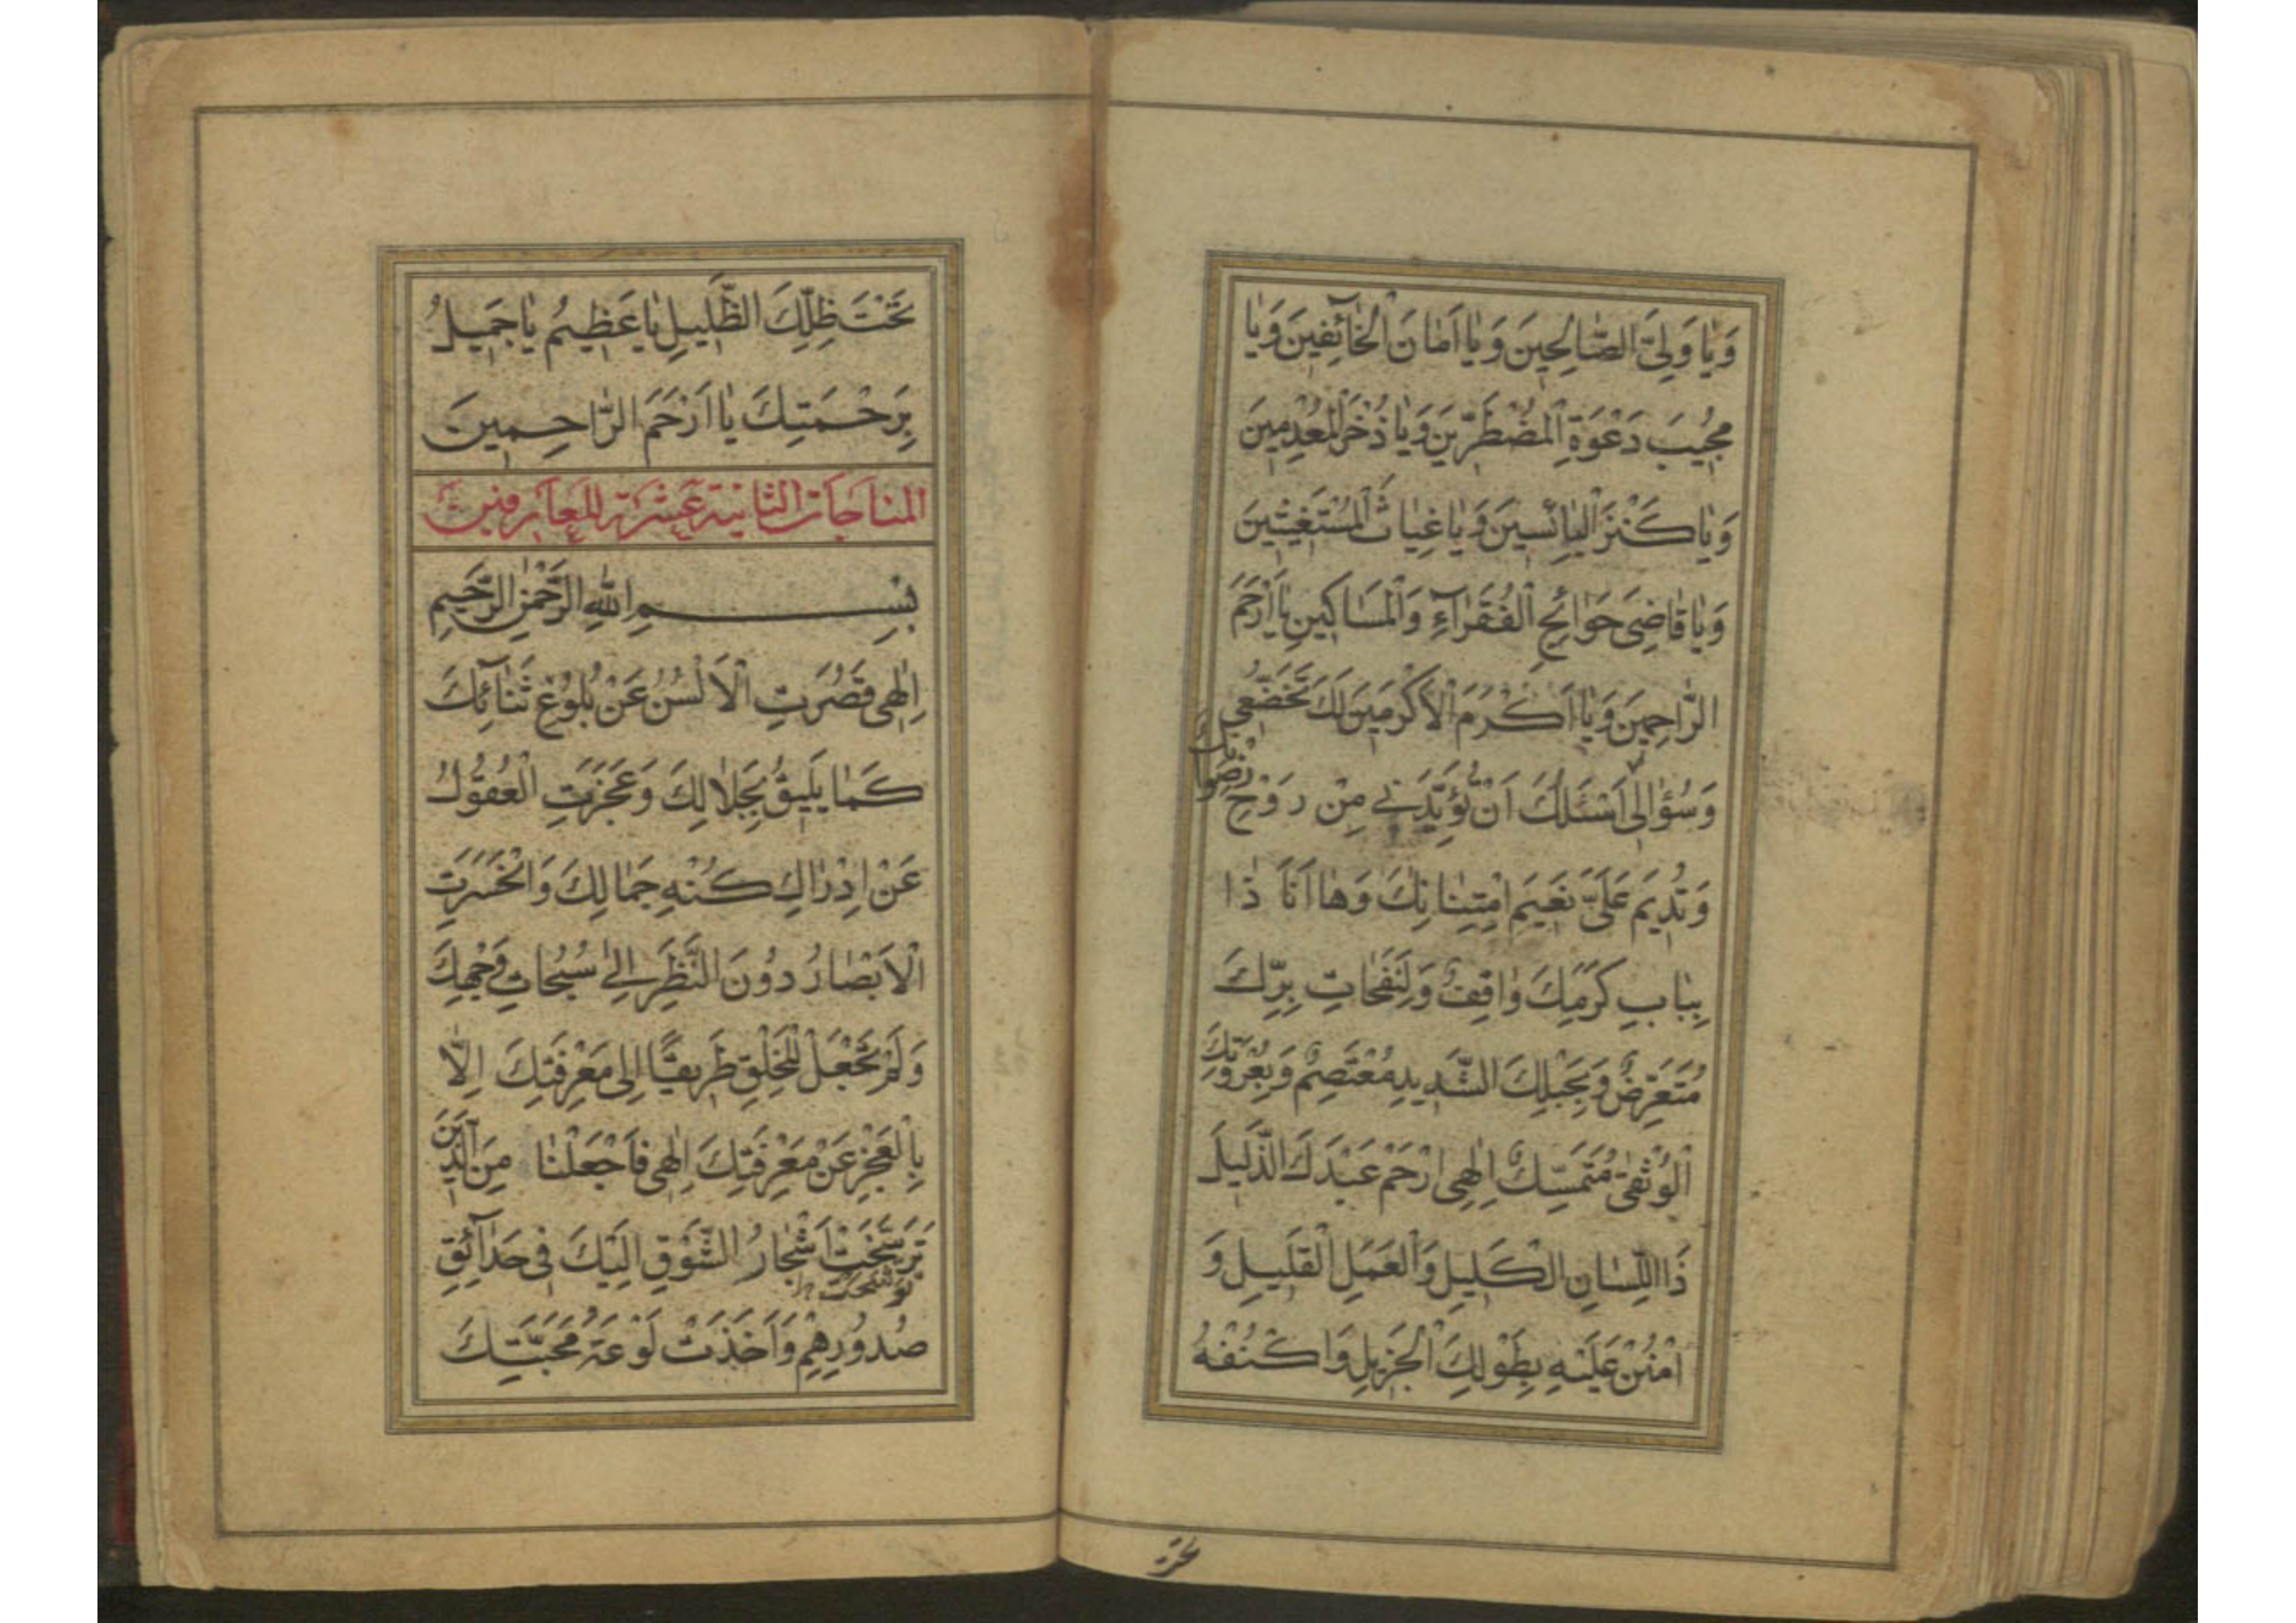 وَيٰا وَلِيَّ الصّٰالِحينَ وَيٰا اَمٰانَ الْخٰائِٓفينَ وَيٰا
مُجيبَ دَعْوَةِ الْمُضْطَرّينَ وَيٰا ذُخْرَ الْمُعْدِمينَ
وَيٰا كَنْزَ الْبٰائِسينَ وَيٰا غِيٰاثَ الْمُسْتَغيثينَ
وَيٰا قٰاضِيَ حَوٰائِجِ الْفُقَرٰآءِ وَالْمَسٰاكينِ يٰا اَرْحَمَ
الرّٰاحِمينَ وَيٰا اَكْرَمَ الْاَكْرَمينَ لَكَ تَخَضُّعي
وَسُؤٰالي اَسْئَلُكَ اَنْ تُؤَيِّدَني مِنْ رَوْحِ رِضْوٰانِكَ
وَتُديمَ عَلَيَّ نَعيمَ امْتِنٰانِكَ وَهٰا اَنَا ذٰا
بِبٰابِ كَرَمِكَ وٰاقِفٌ وَلِنَفَحٰاتِ بِرِّكَ
مُتَعَرِّضٌ وَبِحَبْلِكَ الشَّديدِ مُعْتَصِمٌ وَبِعُرْوَتِكَ
الْوُثْقىٰ مُتَمَسِّكٌ اِلٰهي ارْحَمْ عَبْدَكَ الذَّليلَ
ذَا اللِّسٰانِ الْكَليلِ وَالْعَمَلِ الْقَليلِ وَ
امْنُنْ عَلَيْهِ بِطَوْلِكَ الْجَزيلِ وَاكْنُفْهُ
تَحْتَ ظِلِّكَ الظَّليلِ يٰا عَظيمُ يٰا جَميلُ
بِرَحْمَتِكَ يٰا اَرْحَمَ الرّٰاحِمينَ
المناجات الثانية عشرة للعارفين
بِسْمِ اللّٰهِ الرَّحْمٰنِ الرَّحيمِ
اِلٰهي قَصُرَتِ الْاَلْسُنُ عَنْ بُلُوغِ ثَنٰآئِكَ
كَمٰا يَليقُ بِجَلٰالِكَ وَعَجَزَتِ الْعُقُولُ
عَنْ اِدْرٰاكِ كُنْهِ جَمٰالِكَ وَانْحَسَرَتِ
الْاَبْصٰارُ دُونَ النَّظَرِ اِلىٰ سُبُحٰاتِ وَجْهِكَ
وَلَمْ تَجْعَلْ لِلْخَلْقِ طَريقًا اِلىٰ مَعْرِفَتِكَ اِلّٰا
بِالْعَجْزِ عَنْ مَعْرِفَتِكَ اِلٰهي فَاجْعَلْنٰا مِنَ الَّذينَ
تَرَسَّخَتْ اَشْجٰارُ الشَّوْقِ اِلَيْكَ في حَدٰآئِقِ
توشحت
صُدُورِهِمْ وَاَخَذَتْ لَوْعَةُ مَحَبَّتِكَ